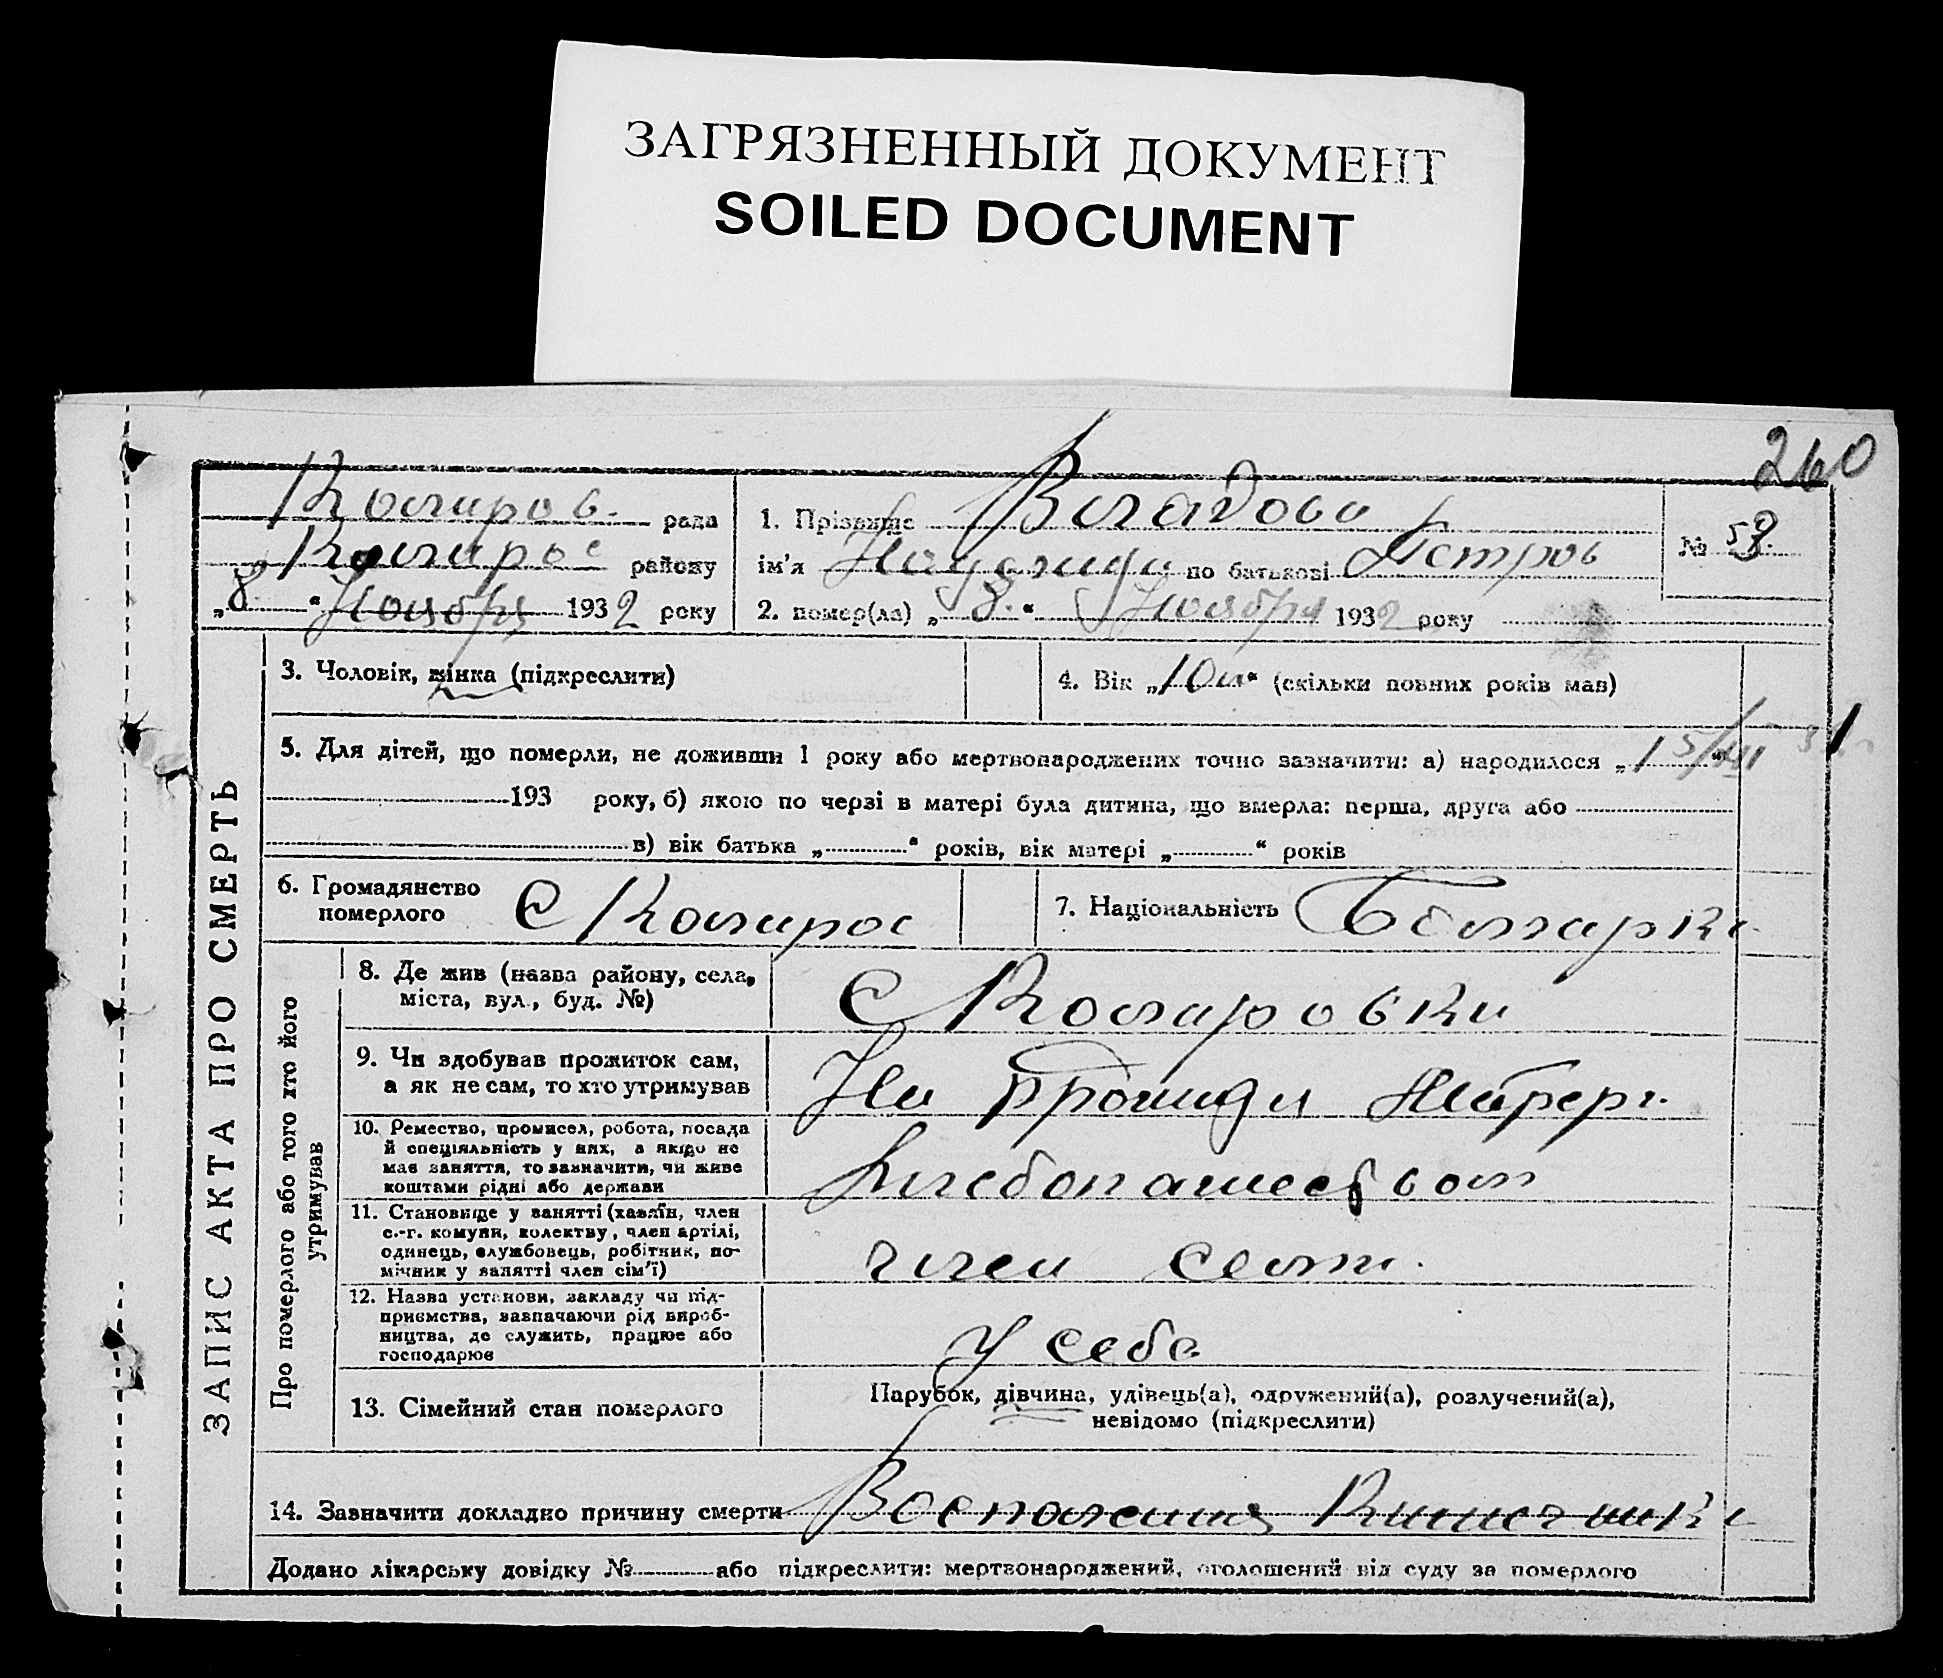 ЗАГРЯЗНЕННЫЙ ДОКУМЕНТ
SOILED DOCUMENT
260
Коларов. рада
Коларов району
„8.“ Ноября 1932 року
1. Прізвище
ім'я по батькові Петров
№ 58.
2. помер(ла) „8.“ Ноября 1932 року
ЗАПИС АКТА ПРО СМЕРТЬ
3. Чоловік, жінка (підкреслити)
4. Вік „10м“ (скільки повних років мав)
5. Для дітей, що померли, не доживши 1 року або мертвонароджених точно зазначити: а) народилося „15/XII 31
193 року, б) якою по черзі в матері була дитина, що вмерла: перша, друга або
в) вік батька „ “ років, вік матері „ “ років
6. Громадянство
померлого
С Коларов
7. Національність Болгарка
Про померлого або того хто його
утримував
8. Де жив (назва району, села,
міста, вул., буд. №)
С Коларовка
9. Чи здобував прожиток сам,
а як не сам, то хто утримував
10. Ремество, промисел, робота, посада
й спеціяльність у них, а якщо не
має заняття, то зазначити, чи живе
коштами рідні або держави
Хлебопашеством
11. Становище у занятті (хазяїн, член
с.-г. комуни, колективу, член артілі,
одинець, службовець, робітник, по-
мічник у занятті член сім'ї)
член семи.
12. Назва установи, закладу чи під-
приємства, зазначаючи рід вироб-
ництва, де служить, працює або
господарює
У себе
13. Сімейний стан померлого
Парубок, дівчина, удівець(а), одружений(а), розлучений(а),
невідомо (підкреслити)
14. Зазначити докладно причину смерти Воспаления Кишечника
Додано лікарську довідку № або підкреслити: мертвонароджений, оголошений від суду за померлого